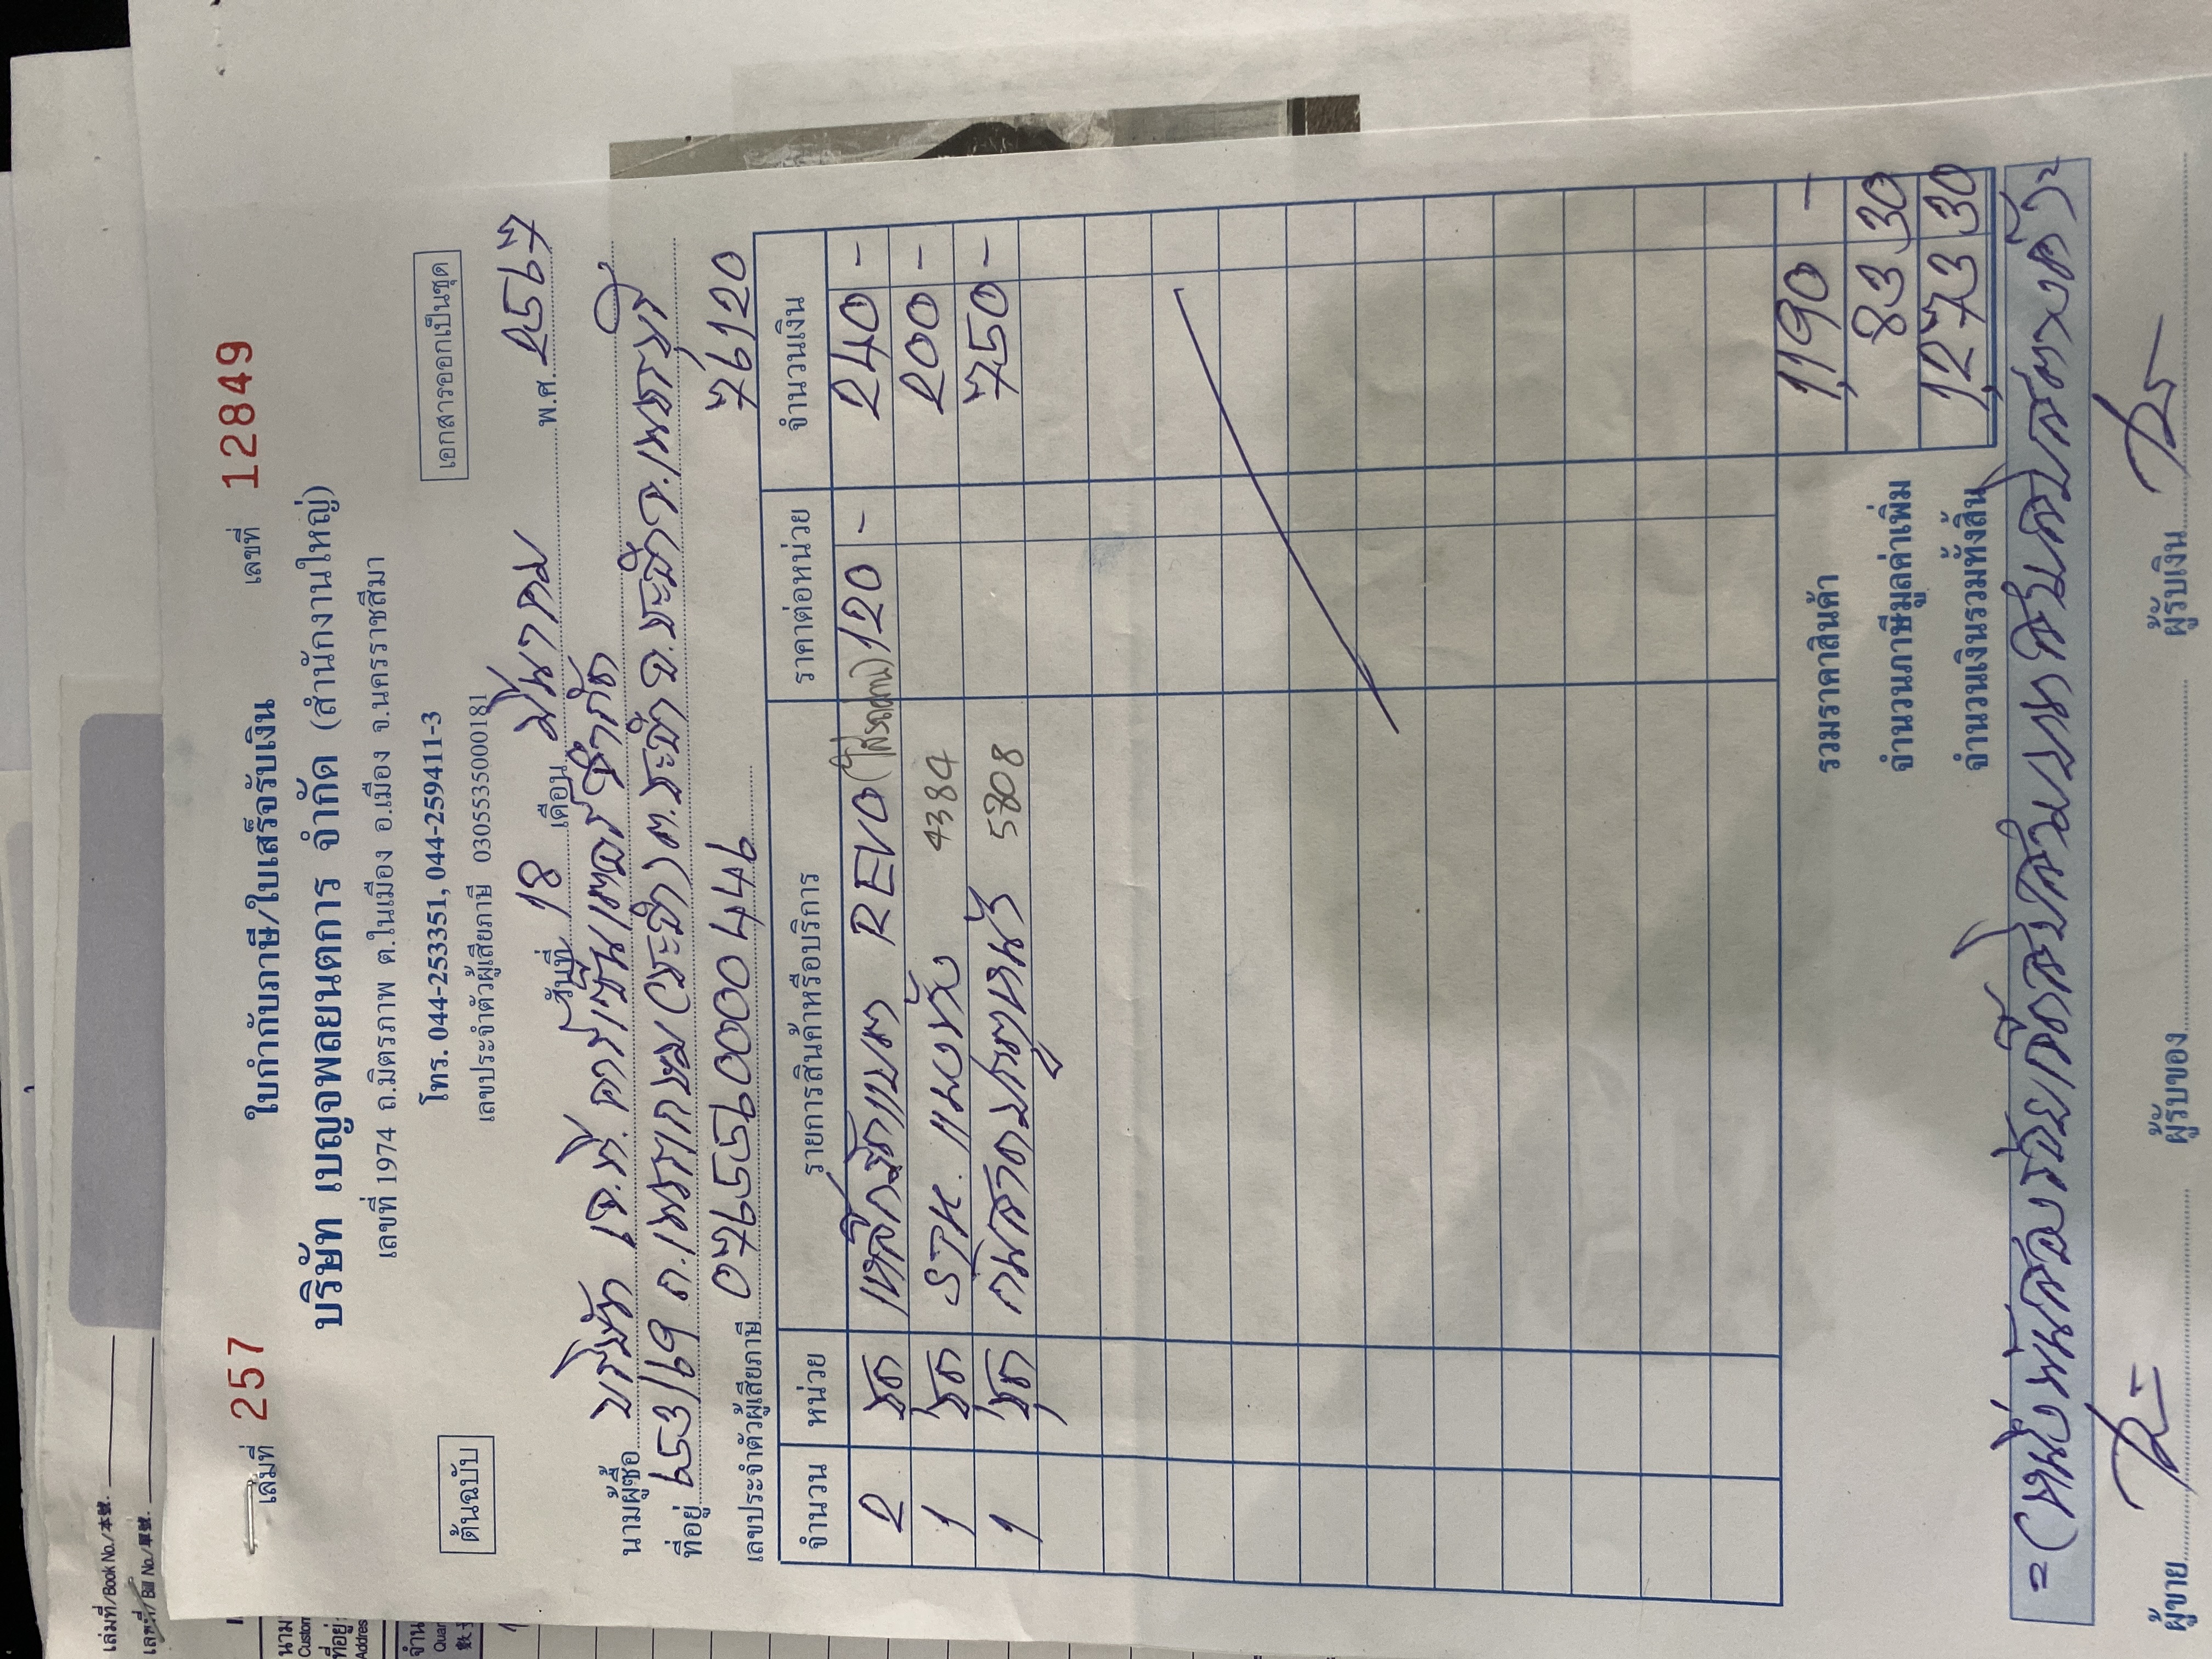 เล่มที่ 257
เลขที่ 12849
ใบกำกับภาษี/ใบเสร็จรับเงิน
บริษัท เบญจพลยนตการ จำกัด (สำนักงานใหญ่)
เลขที่ 1974 ถ.มิตรภาพ ต.ในเมือง อ.เมือง จ.นครราชสีมา
โทร. 044-253351, 044-259411-3
เลขประจำตัวผู้เสียภาษี 0305535000181
ต้นฉบับ
เอกสารออกเป็นชุด
วันที่ 18 เดือน มีนาคม พ.ศ. 2567
นามผู้ซื้อ บริษัท เจ.ที. คาร์เซ็นเตอร์ จำกัด
ที่อยู่ 653/69 ถ.เพชรเกษม (ชะอำ) ต.ชะอำ อ.ชะอำ จ.เพชรบุรี
เลขประจำตัวผู้เสียภาษี 0765560000446 76120
จำนวน หน่วย รายการสินค้าหรือบริการ ราคาต่อหน่วย จำนวนเงิน
2 ชุด เหล็กรัดแบต REVO 120 - 240 -
1 ชุด 4384 200 -
1 ชุด 5708 750 -
รวมราคาสินค้า 1,190 -
จำนวนภาษีมูลค่าเพิ่ม 83 30
จำนวนเงินรวมทั้งสิ้น 1,273 30
=(หนึ่งพันสองร้อยเจ็ดสิบสามบาทสามสิบสตางค์)=
ผู้ขาย
ผู้รับของ
ผู้รับเงิน
เล่มที่/Book No./本號.
เลขที่/Bill No./單號.